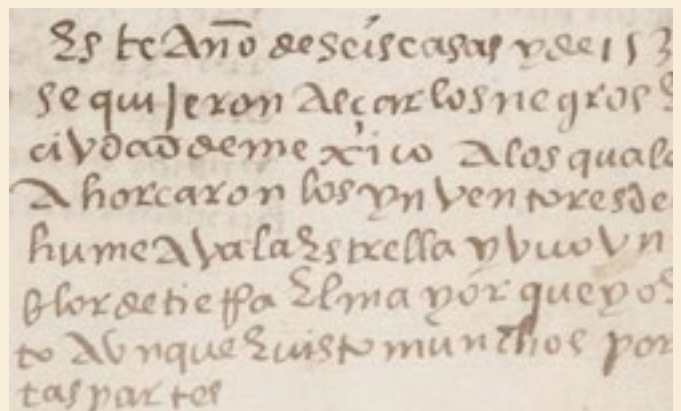 Este Año de seis casas y de 153
se quisieron alçar los negros E
ciudad de mexico A los quale
Ahorcaron los ynventores de
humeava la Estrella y vuo vn
blor de tierra El mayor que yo E
to Avnque E visto munchos por
tas partes